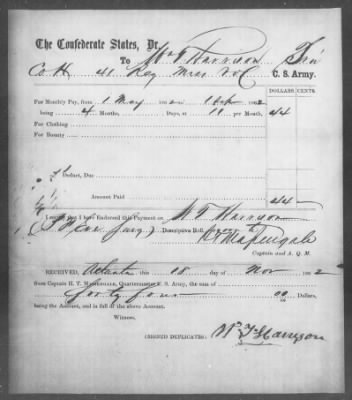 The Confederate States, Dr.
To Wm T Harrison
C. S. Army.
Co H 41 Reg Miss Vol
DOLLARS CENTS
For Monthly Pay, from 1 May 1 Sep 2
being 4 Months, Days, at 11 per Month, 44
For Clothing
For Bounty
Deduct, Due
Amount Paid 44
I certify that I have Endorsed this Payment on W T Harrison
Descriptive Roll.
H T Massengale
Captain and A. Q. M.
RECEIVED, Atlanta this 18 day of Nov 2
from Captain H. T. MASSENGALE, Quartermaster C. S. Army, the sum of
forty four 00 Dollars,
being the Amount, and in full of the above Account.
Witness,
(SIGNED DUPLICATES.) W. T. Harryson